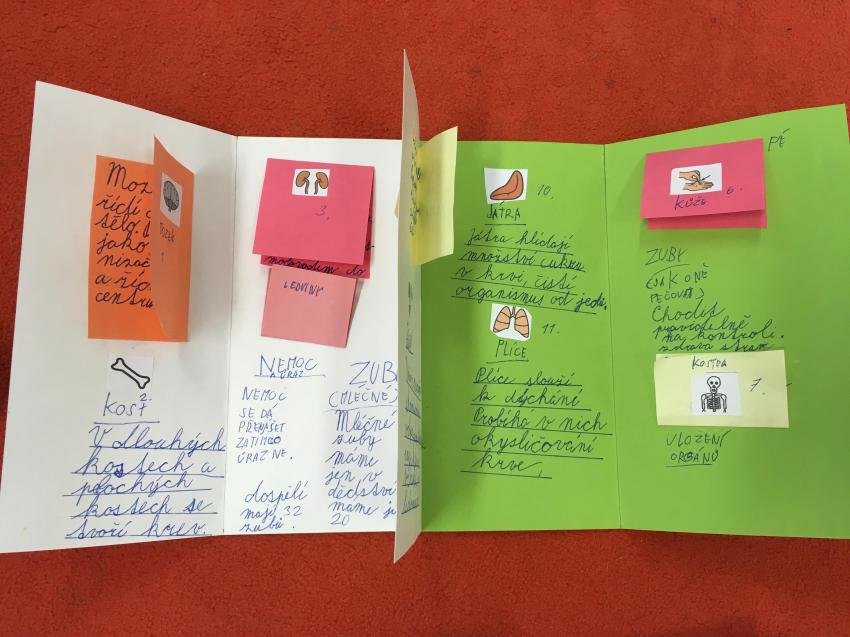 Moz
řídí
tělo.
jako
nizač
a říd
centru
2.
KOSŤ
V dlouhých
kostech a
plochých
kostech se
tvoří krev.
3.
LEDVINY
NEMOC
A ÚRAZ
NEMOC
SE DÁ
PŘENÁŠET
ZATÍMCO
ÚRAZ NE.
dospělí
mají 32
zubů.
ZUB
(MLÉČNÉ)
Mléčné
zuby
máme
jen v
dětství
máme j
20
10.
JÁTRA
Játra hlídají
množství cukru
v krvi, čistí
organismus od jedů.
11.
PLÍCE
Plíce slouží
k dýchání
Probíhá v nich
okysličování
krve.
PÉ
KŮŽE 6.
ZUBY
(JAK O NĚ
PEČOVAT)
Chodit
pravidelně
na kontroli.
zdravá strav
KOSTRA
7.
ULOŽENÍ
ORGÁNŮ